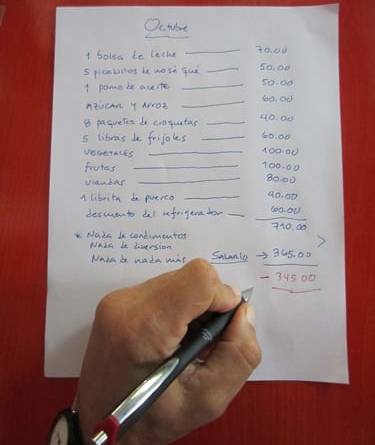 Octubre
1 bolsa de leche 70.00
5 picadillos de no sé qué 50.00
1 pomo de aceite 50.00
AZÚCAR Y ARROZ 60.00
8 paquetes de croquetas 40.00
5 libras de frijoles 60.00
VEGETALES 100.00
frutas 100.00
viandas 80.00
1 librita de puerco 40.00
descuento del refrigerador 60.00
710.00
* Nada de condimentos
Nada de diversion
Nada de nada más
SALARIO → 365.00
- 345.00